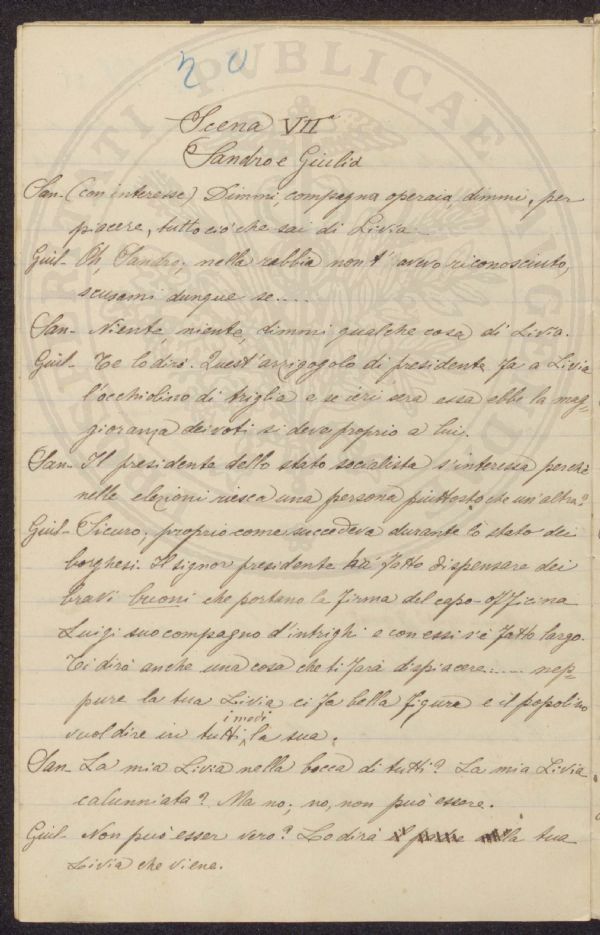 20
Scena VIIa
Sandro e Giulia
San- (con interesse) Dimmi, compagna operaia dimmi, per
piacere, tutto ciò che sai di Livia.
Giul- Oh, Sandro, nella rabbia non t'avevo riconosciuto,
scusami dunque se....
San- Niente, niente, dimmi qualche cosa di Livia.
Giul- Te lo dirò. Quest'arrigogolo di presidente fa a Livia
l'occhiolino di triglia e se ieri sera essa ebbe la mag=
gioranza dei voti si deve proprio a lui.
San- Il presidente dello stato socialista s'interessa perché
nelle elezioni riesca una persona piuttosto che un'altra?
Giul- Sicuro, proprio come succedeva durante lo stato dei
borghesi. Il signor presidente ha fatto dispensare dei
bravi buoni che portano la firma del capo-officina
Luigi suo compagno d'intrighi e con essi s'è fatto largo.
Ti dirò anche una cosa che ti farà dispiacere...... nep=
pure la tua Livia ci fa bella figura e il popolino
vuol dire in tutti i modi la sua.
San- La mia Livia nella bocca di tutti? La mia Livia
calunniata? Ma no; no, non può essere.
Giul- Non può esser vero? Lo dirà la tua
Livia che viene.
PUBLICAE